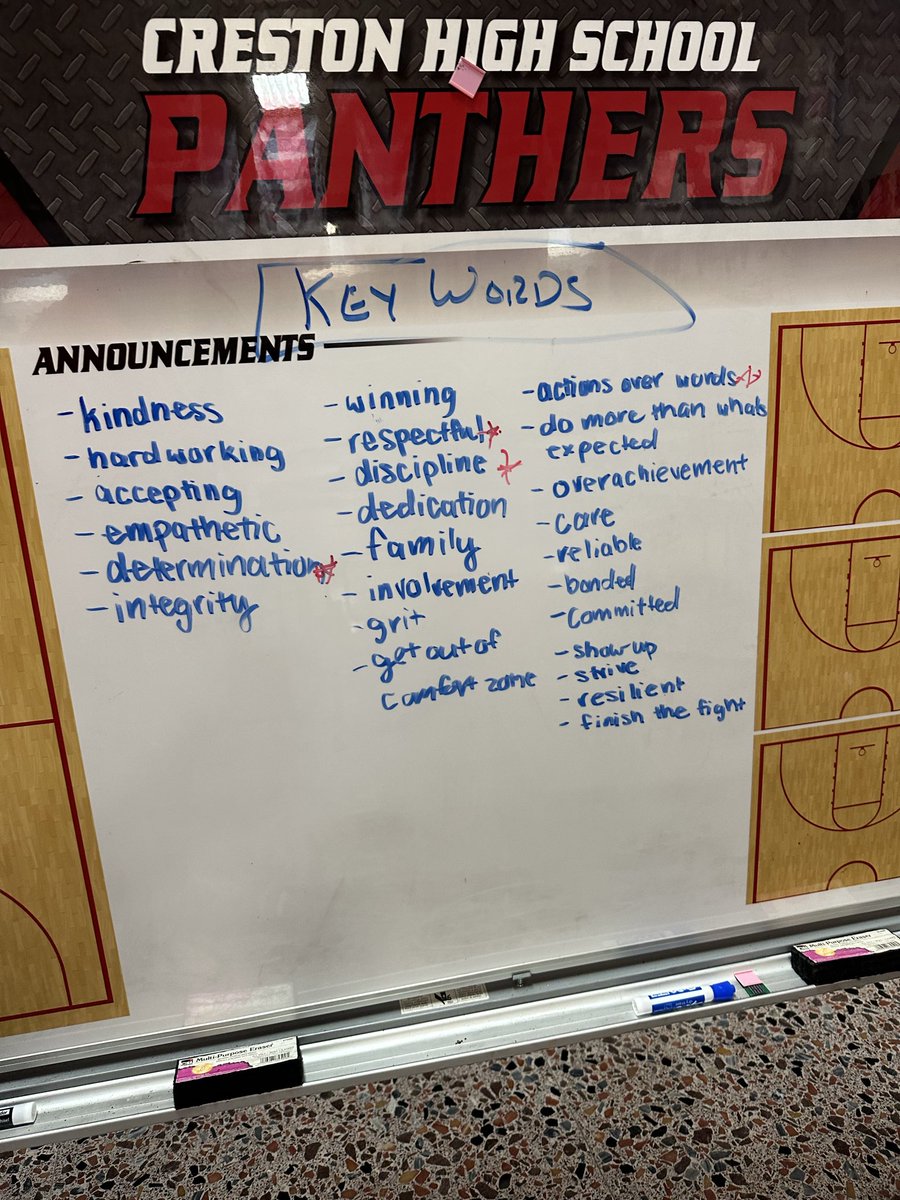 CRESTON HIGH SCHOOL
PANTHERS
KEY WORDS
ANNOUNCEMENTS
- kindness
- hardworking
- accepting
- empathetic
- determination
- integrity
- winning
- respectful
- discipline
- dedication
- family
- involvement
- grit
- get out of
comfort zone
- actions over words
- do more than whats
expected
- overachievement
- care
- reliable
- bonded
- committed
- show up
- strive
- resilient
- finish the fight
Multi-Purpose Eraser
Multi-Purpose Eraser